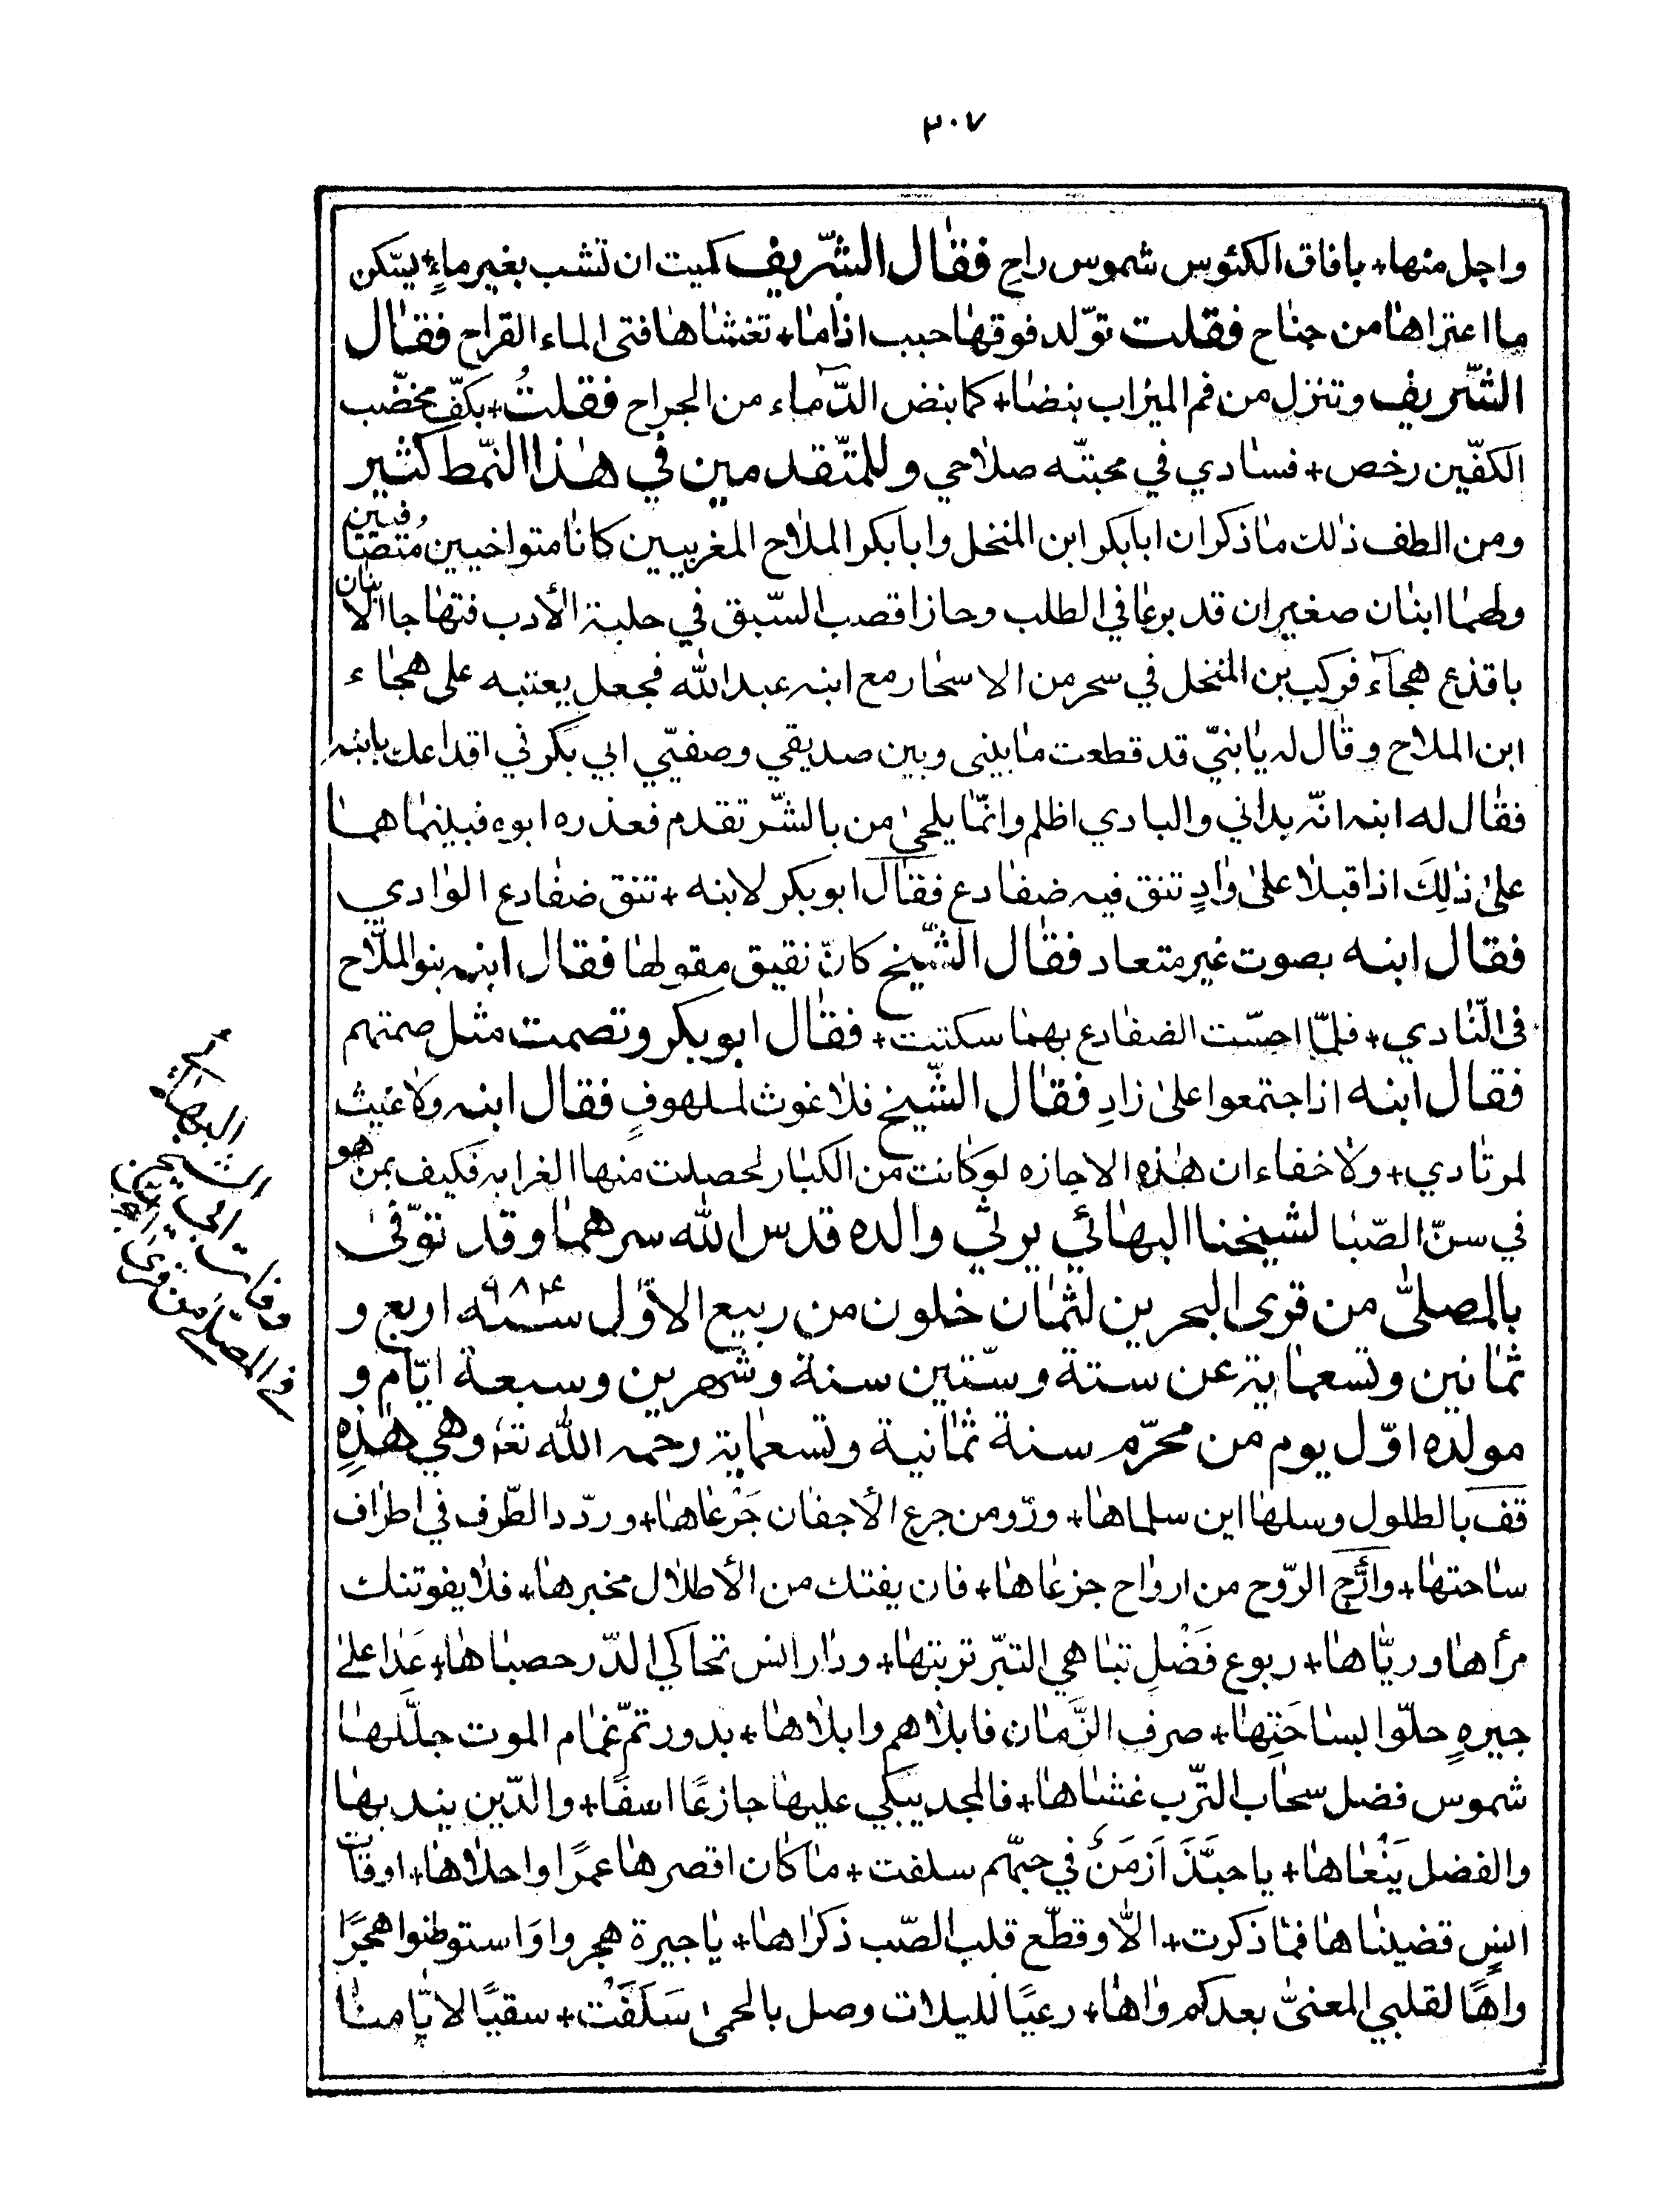 ٣٠٧
واجل منها + بافاق الكئوس شموس راح فقال الشريف كميت ان تشب بغير ماء + يسكن
ما اعتراها من جناح فقلت تولد فوقها حبب اذا ما + تغشاها فتى الماء القراح فقال
الشريف وتنزل من فم الميزاب بنضا + كما بنض الدماء من الجراح فقلت + بكف مخضب
الكفين رخص + فسادي في محبته صلاحي وللمتقدمين في هذا النمط كثير
ومن الطف ذلك ما ذكر ان ابا بكر ابن المنخل وابا بكر الملاح المغربيين كانا متواخيين متصافيين
ولهما ابنان صغيران قد برعا في الطلب وحازا قصب السبق في حلبة الأدب فتهاجا الابنان
باقذع هجآء فركب بن المنخل في سحر من الاسحار مع ابنه عبد الله فجعل يعتبه على هجاء
ابن الملاح وقال له يا بنيّ قد قطعت ما بيني وبين صديقي وصفيّي ابي بكر في اقداعك بابنه
فقال له ابنه انّه بداني والبادي اظلم وانّما يلحىٰ من بالشّر تقدم فعذره ابوه فبينما هما
علىٰ ذلِكَ اذا قبلا علىٰ وادٍ تنق فيه ضفادع فقال ابو بكر لابنه + تنق ضفادع الوادي
فقال ابنه بصوت غير متعاد فقال الشّيخ كانّ نقيق مقولها فقال ابنه بنو الملّاح
فى النّادي + فلمّا احسّت الضفادع بهما سكتت + فقال ابو بكر وتصمت مثل صمتهم
فقال ابنه اذا اجتمعوا علىٰ زادِ فقال الشّيخ فلا غوث لملهوفٍ فقال ابنه ولا غيث
لمرتادي + ولا خفاء ان هذه الاجازه لو كانت من الكبار لحصلت منها الغرابه فكيف بمن هو
في سنّ الصّبا لشيخنا البهائي يرثي والده قدس الله سرهما وقد توّفىٰ
بالمصلّى من قرى البحرين لثمان خلون من ربيع الأوّل سنة ٩٨٤ اربع و
ثمانين وتسعماية عن ستة وستّين سنة وشهرين وسبعة ايّام و
مولده اوّل يوم من محرّم سنة ثمانية وتسعماية رحمه الله تع وهي هذِهِ
قف بالطلول وسلها اين سلماها + وروّ من جرع الأجفان جَرْعاها + وردّد الطّرف في اطراف
ساحتها + وارّج الرّوح من ارواح جزعاها + فان يفتك من الأطلال مخبرها + فلا يفوتنك
مرأها وريّاها + ربوع فَضْلٍ تباهي التبر تربتها + ودار انس تحاكي الدّر حصباها + عَدَا علىٰ
جيرهٍ حلّوا بساحَتِها + صرف الزَّمان فابلاهم وابلاها + بدور تمّ غمام الموت جلّلها
شموس فضل سحاب التّرب غشاها + فالمجد يبكي عليها جازعًا اسفًا + والدّين يندبها
والفضل يَنْعاها + يا حبَّذَ ازمنٌ في حبهّم سلفت + ما كان اقصرها عمرًا واحلاها + اوقات
انسٍ قضيناها فما ذكرت + الّا وقطّع قلب الصّب ذكراها + يا جيرة هجروا وَاستوطنوا هجَرًا
واهًا لقلبي المعنىّ بعدكم واها + رعيًا لليلات وصل بالحمىٰ سَلَفَتْ + سقيًا لايّامنا
وفات ابي الشيخ
البهائي
في المصلى من قرى